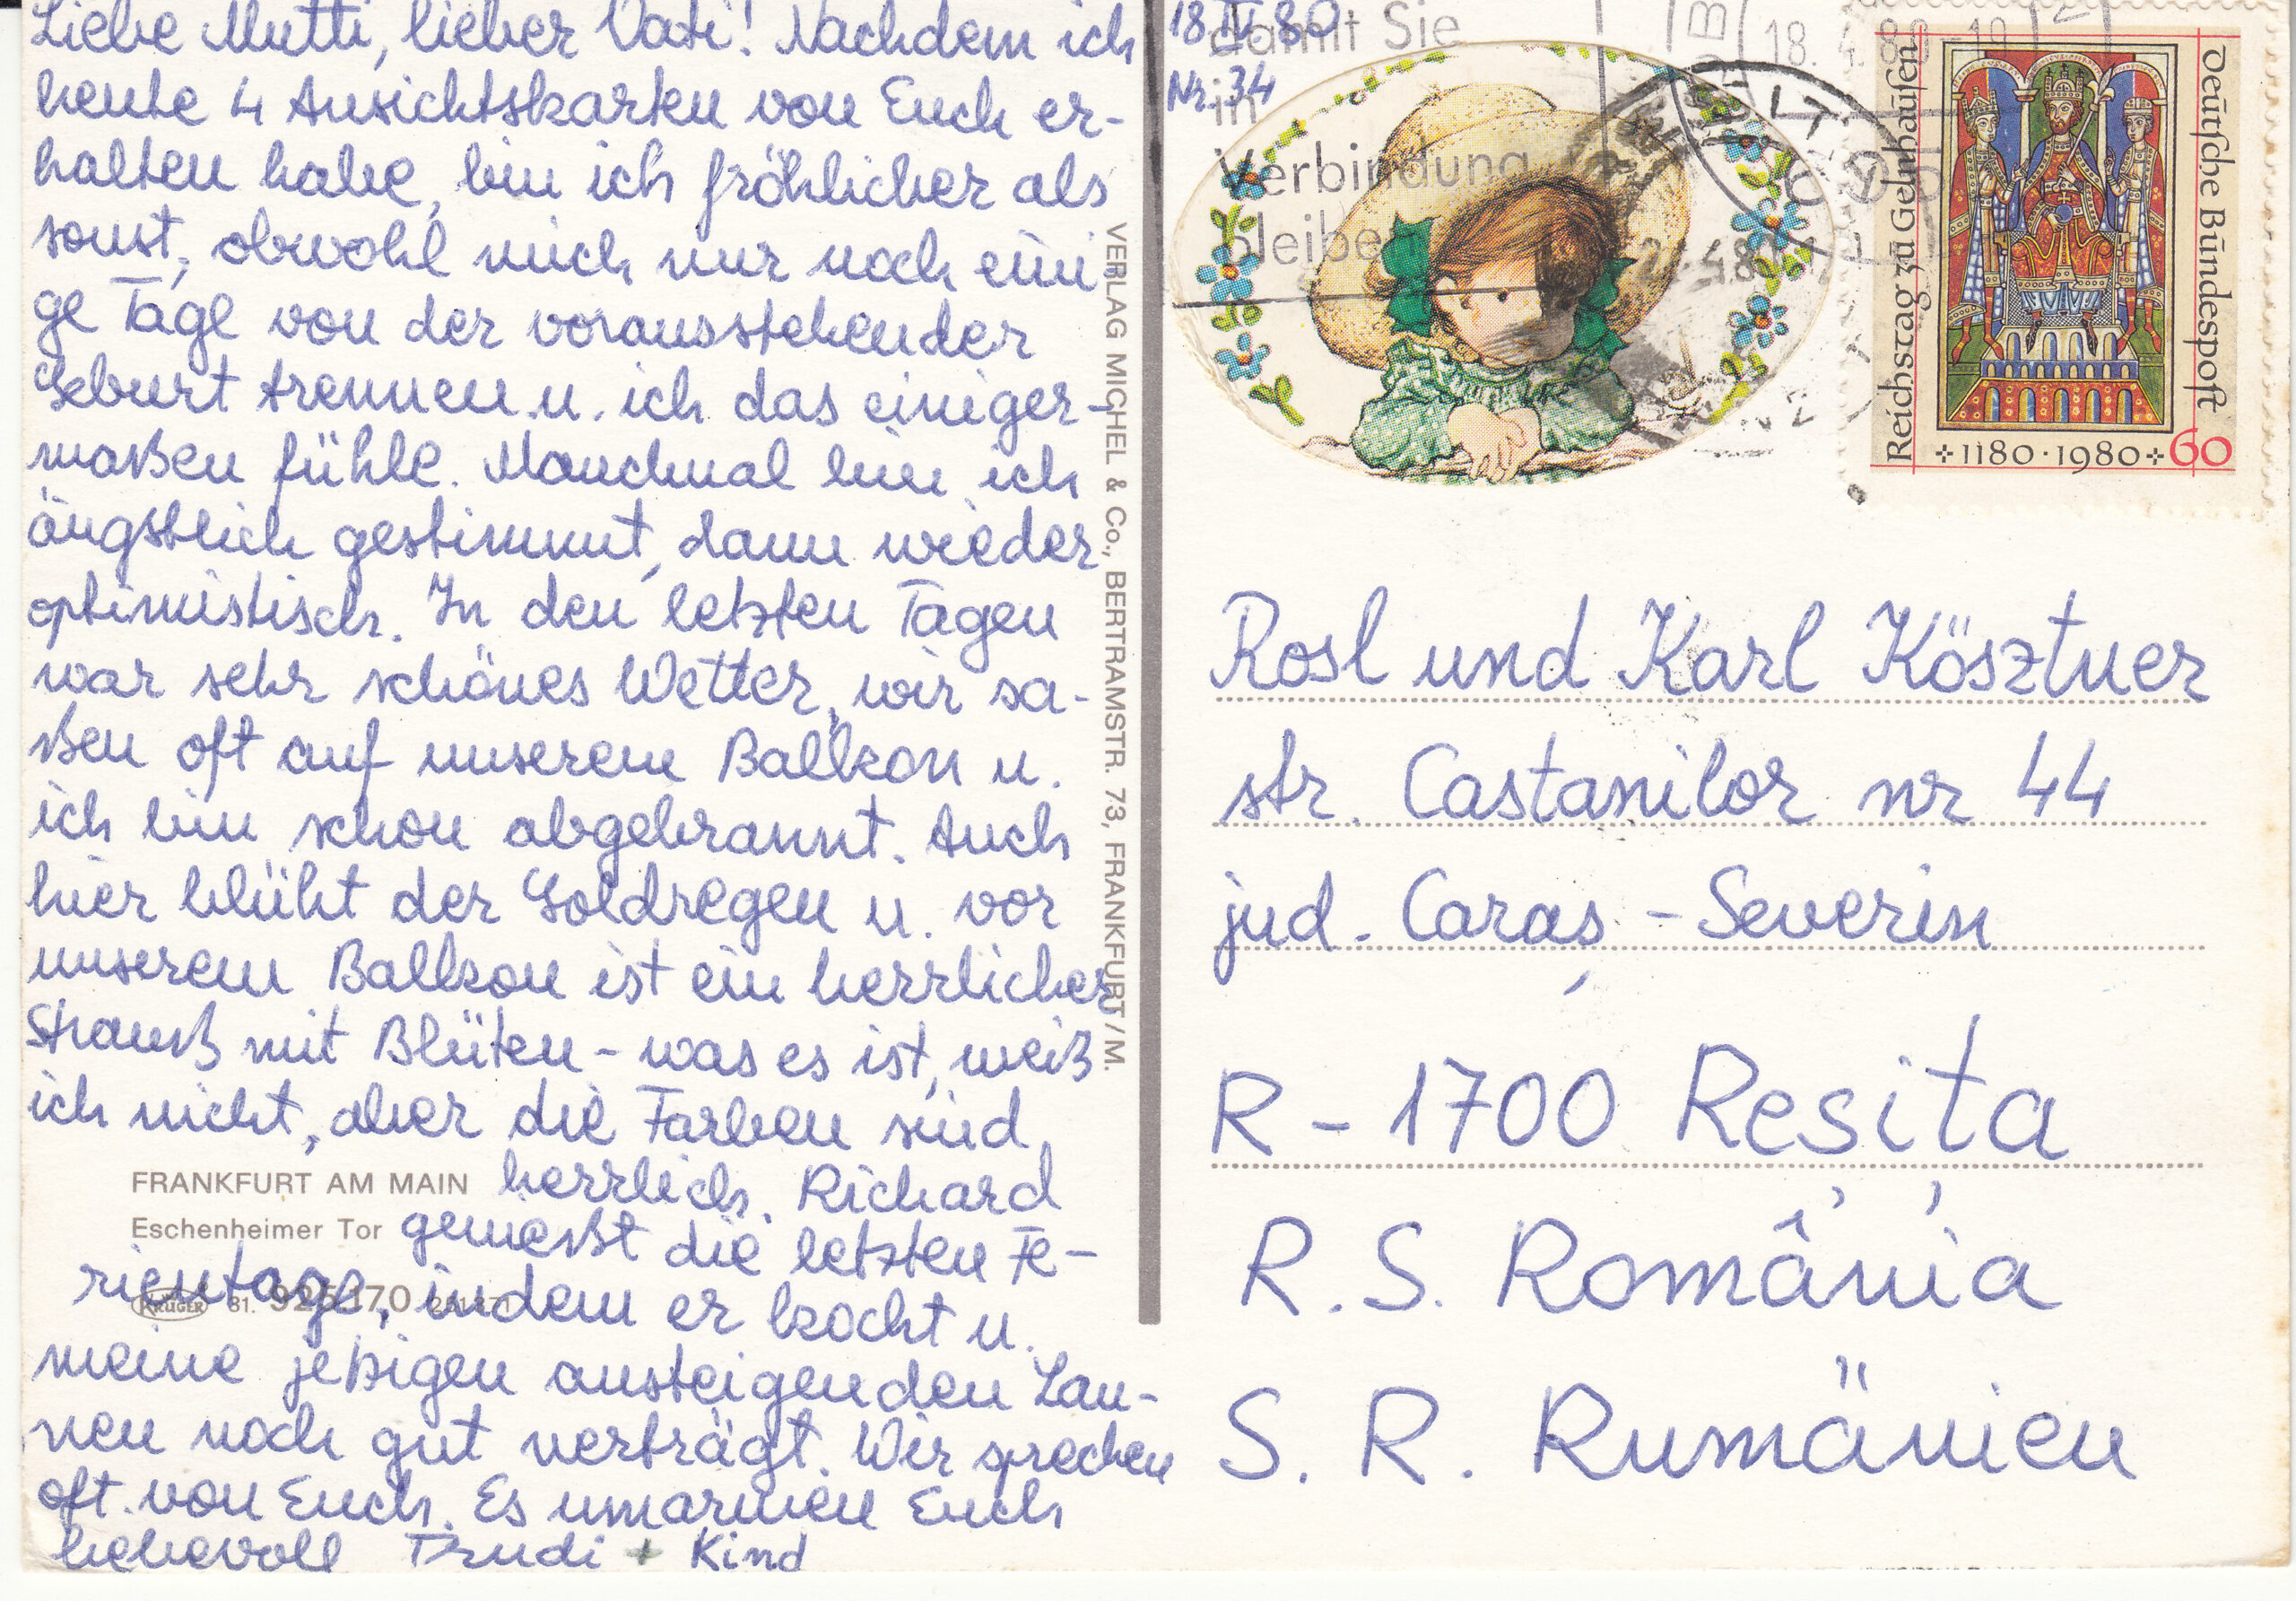 Liebe Mutti, lieber Vati! Nachdem ich
heute 4 Ansichtskarten von Euch er-
halten habe, bin ich fröhlicher als
sonst, obwohl mich nur noch eini
ge Tage von der vorausstehender
Geburt trennen u. ich das einiger-
maßen fühle. Manchmal bin ich
ängstlich gestimmt, dann wieder
optimistisch. In den letzten Tagen
war sehr schönes Wetter, wir sa-
ßen oft auf unserem Balkon u.
ich bin schon abgebrannt. Auch
hier blüht der Goldregen u. vor
unserem Balkon ist ein herrlicher
Strauß mit Blüten - was es ist, weiß
ich nicht, aber die Farben sind
herrlich. Richard
genießt die letzten Fe-
rientage, indem er kocht u.
meine jetzigen ansteigenden Lau-
nen noch gut verträgt. Wir sprechen
oft von Euch. Es umarmen Euch
liebevoll Trudi + Kind
FRANKFURT AM MAIN
Eschenheimer Tor
KRÜGER 81. 925.170
VERLAG MICHEL & Co., BERTRAMSTR. 73, FRANKFURT/M.
18.IV.80
Nr. 34
damit Sie
in
Verbindung
bleiben
18.4.80-19
Reichstag zu Gelnhausen
Deutsche Bundespost
+1180·1980+60
Rosl und Karl Kösztner
str. Castanilor nr 44
jud. Caraș - Severin
R - 1700 Reșița
R. S. România
S. R. Rumänien